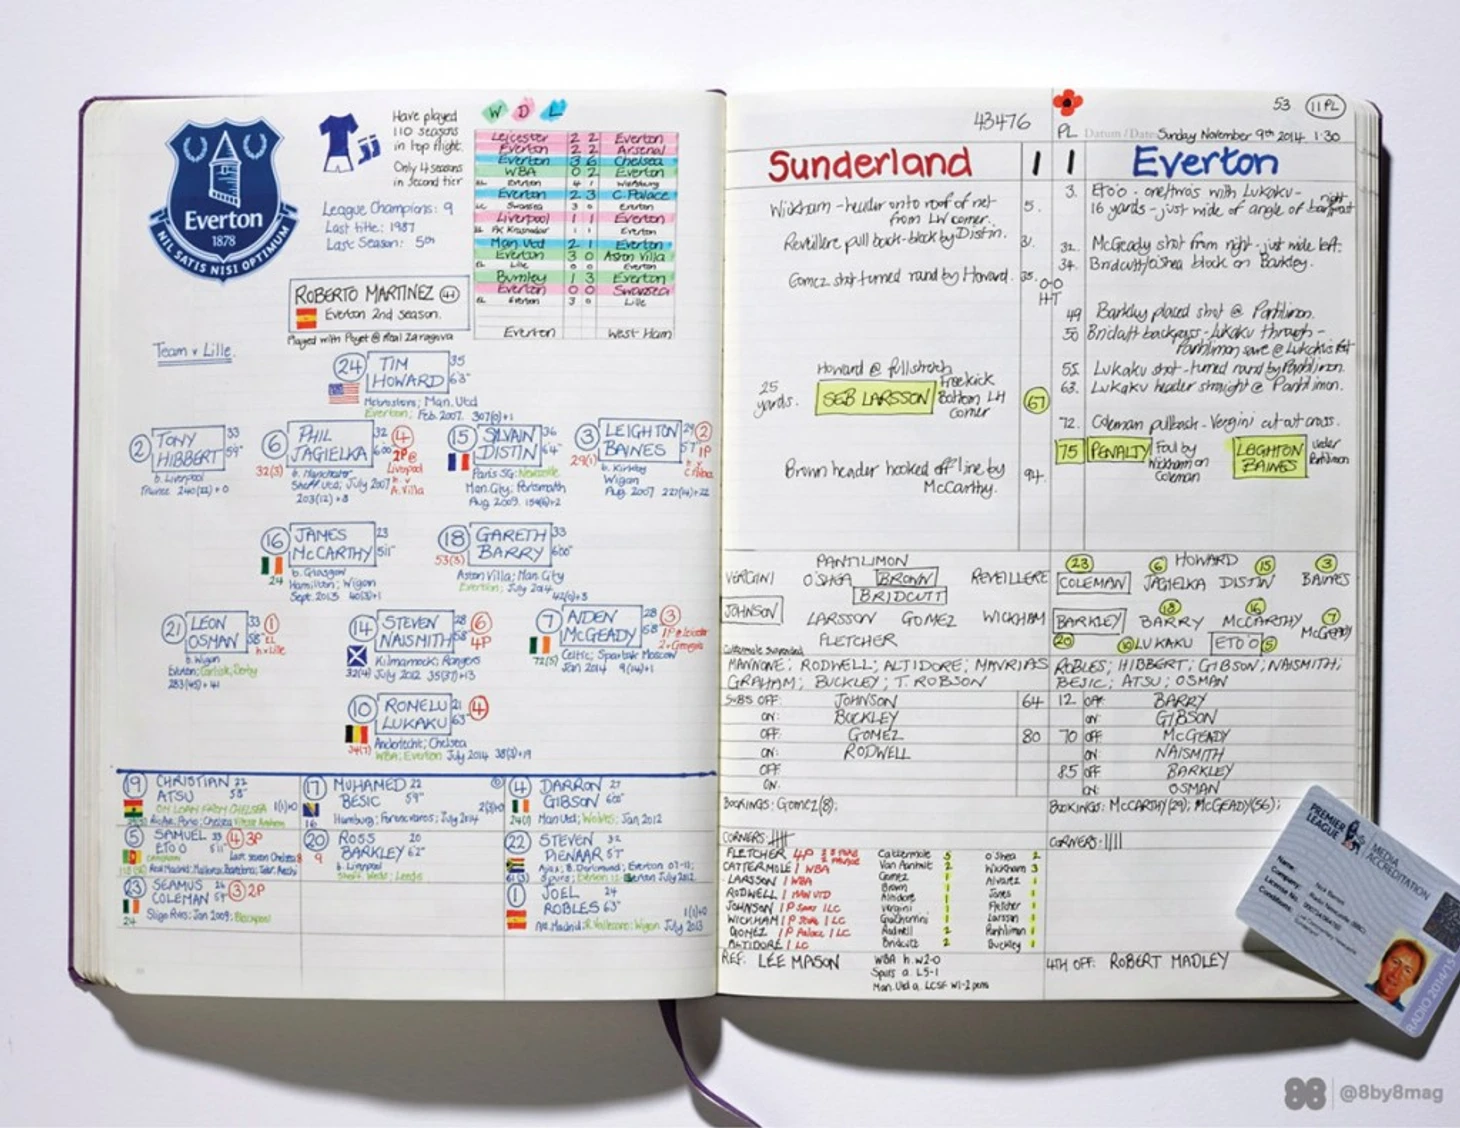 Everton
1878
NIL SATIS NISI OPTIMUM
Have played
110 seasons
in top flight.
Only 4 seasons
in second tier
League Champions: 9
Last title: 1987
Last Season: 5th
W D L
Leicester 2 2 Everton
Everton 2 2 Arsenal
Everton 3 6 Chelsea
WBA 0 2 Everton
Everton 4 1 Wolfsburg
Everton 2 3 C.Palace
Swansea 3 0 Everton
Liverpool 1 1 Everton
FK Krasnodar 1 1 Everton
Man Utd 2 1 Everton
Everton 3 0 Aston Villa
EL Lille 0 0 Everton
Burnley 1 3 Everton
Everton 0 0 Swansea
EL Everton 3 0 Lille
Everton West Ham
ROBERTO MARTINEZ 41
Everton 2nd season.
Played with Poyet @ Real Zaragoza
Team v Lille.
24 TIM HOWARD 35 6'3"
Man. Utd
Everton; Feb. 2007. 307(0)+1
2 TONY HIBBERT 33 5'9"
b. Liverpool
240(22)+0
6 PHIL JAGIELKA 32 6'00" 4
2P@ Liverpool
h. v A. Villa
32(3)
b. Manchester
Sheff. Utd; July 2007
203(12)+8
15 SILVAIN DISTIN 36 6'4"
Paris SG; Newcastle;
Man. City; Portsmouth
Aug. 2009.
3 LEIGHTON BAINES 29 5'7" 2
1P
29(1)
b. Kirkby
Wigan
Aug. 2007 227(14)+22
16 JAMES McCARTHY 23 5'11"
24
b. Glasgow
Hamilton; Wigan
Sept. 2013 40(3)+1
18 GARETH BARRY 33 6'00"
53(3)
Aston Villa; Man. City
Everton; July 2014
21 LEON OSMAN 33 5'8" 1
EL
h v Lille
b. Wigan
Everton; Carlisle; Derby
283(45)+41
14 STEVEN NAISMITH 28 5'8" 6
4P
Kilmarnock; Rangers
32(4) July 2012 35(31)+13
7 AIDEN McGEADY 28 5'8" 3
1P @ Leicester
2 v Georgia
72(5)
Celtic; Spartak Moscow
Jan 2014 9(14)+1
10 ROMELU LUKAKU 21 6'3" 4
34(7)
Anderlecht; Chelsea
WBA; Everton July 2014 38(3)+19
19 CHRISTIAN ATSU 22 5'8"
ON LOAN FROM CHELSEA 1(1)+0
Rio Ave; Porto; Chelsea Vitesse Arnhem
17 MUHAMED BESIC 22 5'9"
16
Hamburg; Ferencvaros; July 2014
4 DARRON GIBSON 27 6'00"
Man Utd; Wolves; Jan 2012
5 SAMUEL ETO'O 33 5'11" 4 3P
Last season Chelsea 8
20 ROSS BARKLEY 20 6'2"
9
b. Liverpool
Sheff. Weds; Leeds
22 STEVEN PIENAAR 32 5'7"
Ajax; B. Dortmund; Everton 07-11;
Everton July 2012
23 SEAMUS COLEMAN 26 5'7" 3 2P
24
Sligo Rovs; Jan 2009; Blackpool
1 JOEL ROBLES 24 6'3"
1(1)+0
Atl. Madrid; R. Vallecano; Wigan July 2013
53 11 PL
43476
PL Datum / Date Sunday November 9th 2014. 1:30
Sunderland 1 1 Everton
Wickham - header onto roof of net
from LW corner. 5.
Reveillere pull back - block by Distin. 31.
Gomez shot turned round by Howard. 35.
0-0
HT
Howard @ full stretch
25 yards. SEB LARSSON Freekick
Bottom LH
corner 67
Brown header hooked off line by
McCarthy. 94.
3. Eto'o - one/two's with Lukaku -
16 yards - just wide of angle of right
bar/post
32. McGeady shot from right - just wide left.
34. Bridcutt/O'Shea block on Barkley.
49 Barkley placed shot @ Pantilimon.
50 Bridcutt backpass - Lukaku through -
Pantilimon save @ Lukaku's feet
55. Lukaku shot - turned round by Pantilimon.
63. Lukaku header straight @ Pantilimon.
72. Coleman pullback - Vergini cut out cross.
75 PENALTY Foul by
Wickham on
Coleman LEIGHTON
BAINES under
Pantilimon
PANTILIMON
VERGINI O'SHEA BROWN REVEILLERE
BRIDCUTT
JOHNSON LARSSON GOMEZ WICKHAM
FLETCHER
Cattermole suspended
MANNONE; RODWELL; ALTIDORE; MAVRIAS
GRAHAM; BUCKLEY; T. ROBSON
23 6 HOWARD 15 3
COLEMAN JAGIELKA DISTIN BAINES
18 16 7
BARKLEY BARRY McCARTHY McGEADY
20 10 LUKAKU ETO'O 5
ROBLES; HIBBERT; GIBSON; NAISMITH;
BESIC; ATSU; OSMAN
SUBS OFF: JOHNSON 64
ON: BUCKLEY
OFF: GOMEZ 80
ON: RODWELL
OFF:
ON:
12 OFF: BARRY
ON: GIBSON
70 OFF McGEADY
ON: NAISMITH
85 OFF BARKLEY
ON: OSMAN
BOOKINGS: Gomez(8);
BOOKINGS: McCARTHY(29); McGEADY(56);
CORNERS:
CORNERS: IIII
FLETCHER 4P
CATTERMOLE 1 WBA
LARSSON 1 WBA
RODWELL 1 MAN UTD
JOHNSON 1P Spurs 1LC
WICKHAM 1P Stoke 1 LC
GOMEZ 1P Palace 1 LC
ALTIDORE 1 LC
Cattermole 5
Van Aanholt 2
Gomez 1
Brown 1
Altidore 1
Vergini 1
Giaccherini 1
Rodwell 2
Bridcutt 2
O'Shea 2
Wickham 3
Alvarez 1
Jones 1
Fletcher 1
Larsson 1
Pantilimon 1
Buckley 1
REF: LEE MASON
WBA h. W2-0
Spurs a. L5-1
Man. Utd a. LCSF W1-2 pens
4TH OFF: ROBERT MADLEY
PREMIER
LEAGUE
MEDIA
ACCREDITATION
Name:
Company:
License No.
Conditions:
RADIO 2014/15
88 @8by8mag